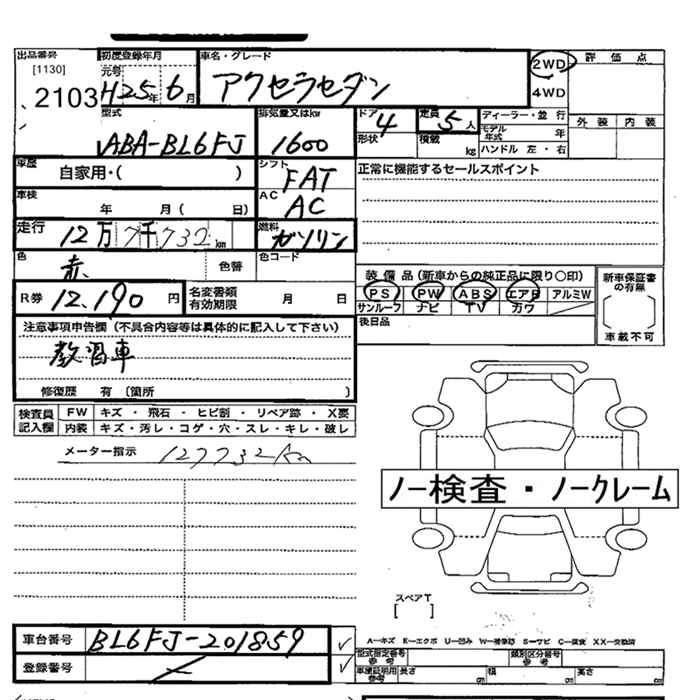 出品番号 初度登録年月 車名・グレード 評価点
[1130] 元号 2WD
2103 H25年 6月 アクセラセダン 4WD
型式 排気量又はkw ドア 定員 ディーラー・並行 外装 内装
ABA-BL6FJ 1600 4 5人 モデル年式 年
形状 積載 kg ハンドル 左・右
車歴 自家用・( ) シフト FAT 正常に機能するセールスポイント
車検 年 月( 日) AC AC
走行 12万7千732km 燃料 ガソリン
色 赤 色替 色コード 装備品(新車からの純正品に限り○印) 新車保証書の有無
R券 12,190円 名変書類有効期限 月 日 PS PW ABS エアB アルミW
サンルーフ ナビ TV カワ
注意事項申告欄(不具合内容等は具体的に記入して下さい) 後日品 車載不可
教習車
修復歴 有(箇所 )
検査員 FW キズ・飛石・ヒビ割・リペア跡・X要
記入欄 内装 キズ・汚レ・コゲ・穴・スレ・キレ・破レ
メーター指示 127732km
ノー検査・ノークレーム
スペアT
[ ]
車台番号 BL6FJ-201859 A−キズ E−エクボ U−凹み W−補修跡 S−サビ C−腐食 XX−交換済
型式指定番号 参考 類別区分番号 参考
登録番号 車庫証明用参考 長さ cm 幅 cm 高さ cm